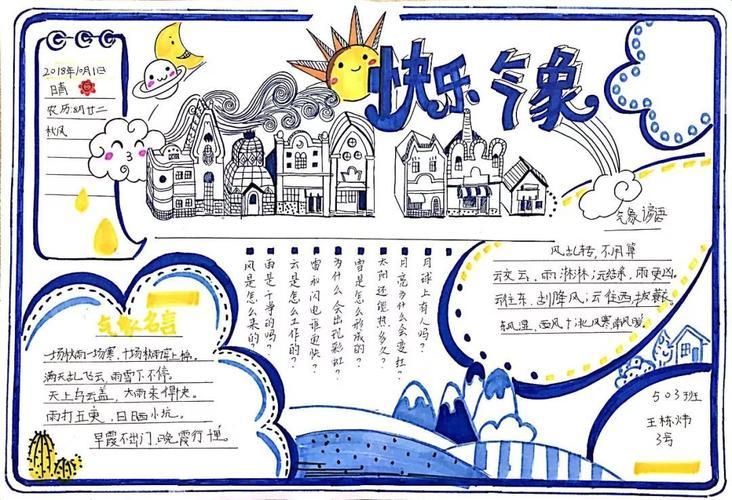 2018年10月1日
晴
农历:8月廿二
秋风
快乐气象
气象谚语
风乱转,不用算
云交云,雨淋淋;云结亲,雨更凶。
云往东,刮阵风;云往西,披蓑衣
东风湿,西风干,北风寒,南风暖。
月球上有人吗?
月亮为什么会变红?
太阳还能热多久?
雪是怎么形成的?
为什么会出现彩虹?
雷和闪电谁更快?
云是怎么工作的?
雨是干净的吗?
风是怎么来的?
气象名言
一场秋雨一场寒,十场秋雨穿上棉。
满天乱飞云,雨雪下不停。
天上乌云盖,大雨来得快。
雨打五更,日晒水坑。
早霞不出门,晚霞行千里
503班
王栋炜
3号